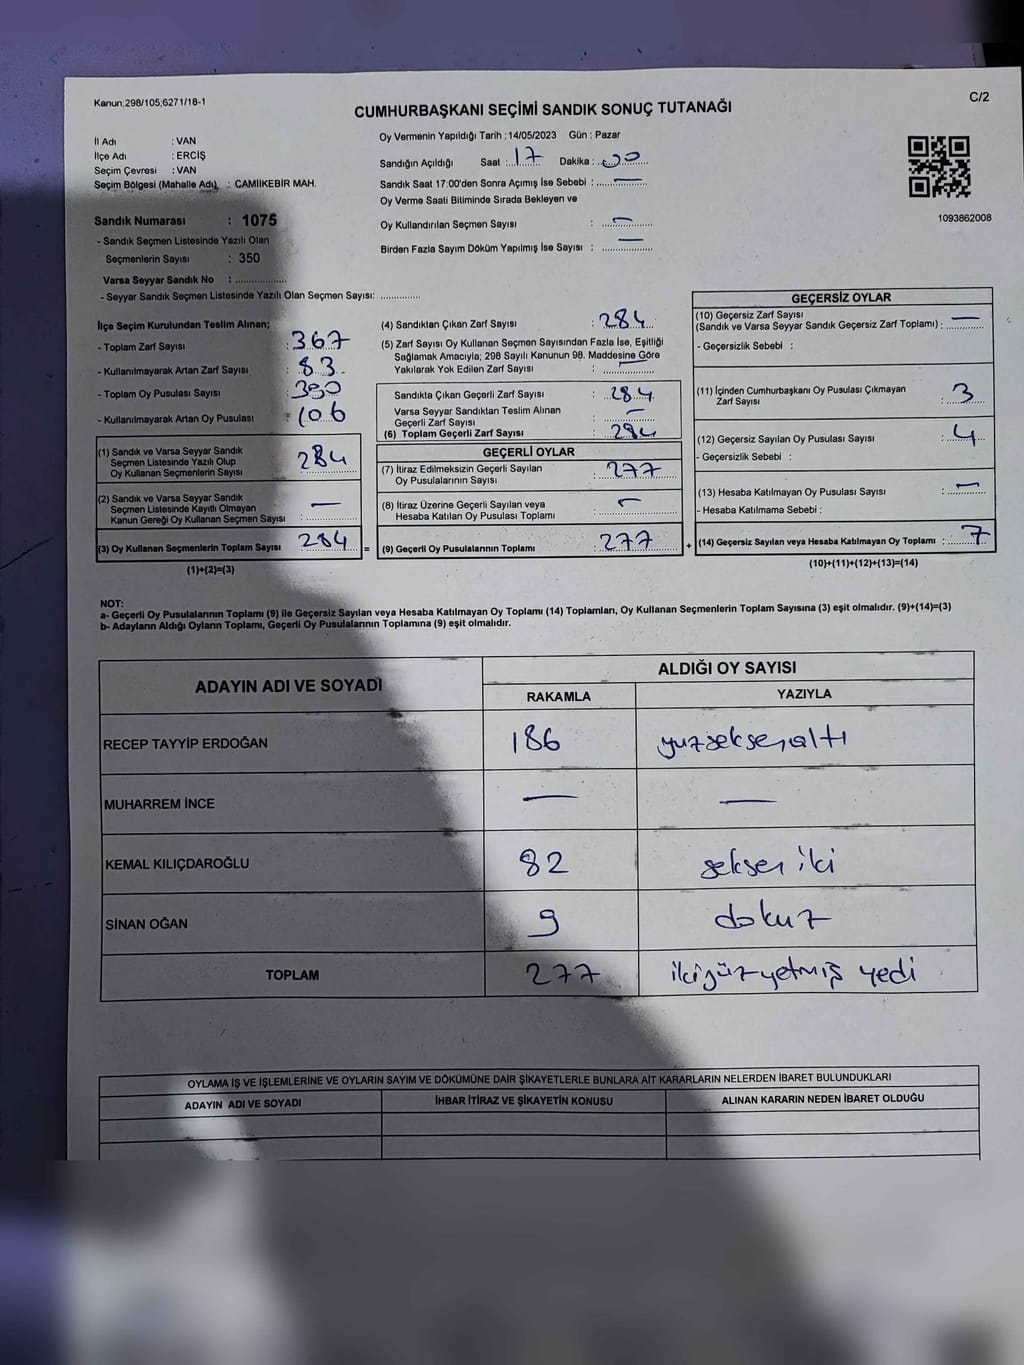 Kanun;298/105,6271/18-1
C/2
CUMHURBAŞKANI SEÇİMİ SANDIK SONUÇ TUTANAĞI
İl Adı : VAN
İlçe Adı : ERCİŞ
Seçim Çevresi : VAN
Seçim Bölgesi (Mahalle Adı) : CAMİİKEBİR MAH.
Oy Vermenin Yapıldığı Tarih : 14/05/2023 Gün : Pazar
Sandığın Açıldığı Saat : 17 Dakika : 00
Sandık Saat 17:00'den Sonra Açımış İse Sebebi : —
Oy Verme Saati Bitiminde Sırada Bekleyen ve
Oy Kullandırılan Seçmen Sayısı : —
Birden Fazla Sayım Döküm Yapılmış İse Sayısı : —
1093862008
Sandık Numarası : 1075
- Sandık Seçmen Listesinde Yazılı Olan
Seçmenlerin Sayısı : 350
Varsa Seyyar Sandık No : ...............
- Seyyar Sandık Seçmen Listesinde Yazılı Olan Seçmen Sayısı: ............
İlçe Seçim Kurulundan Teslim Alınan;
- Toplam Zarf Sayısı : 367
- Kullanılmayarak Artan Zarf Sayısı : 83
- Toplam Oy Pusulası Sayısı : 390
- Kullanılmayarak Artan Oy Pusulası : 106
(1) Sandık ve Varsa Seyyar Sandık
Seçmen Listesinde Yazılı Olup
Oy Kullanan Seçmenlerin Sayısı 284
(2) Sandık ve Varsa Seyyar Sandık
Seçmen Listesinde Kayıtlı Olmayan
Kanun Gereği Oy Kullanan Seçmen Sayısı : —
(3) Oy Kullanan Seçmenlerin Toplam Sayısı 284 =
(1)+(2)=(3)
(4) Sandıktan Çıkan Zarf Sayısı : 284
(5) Zarf Sayısı Oy Kullanan Seçmen Sayısından Fazla İse, Eşitliği
Sağlamak Amacıyla; 298 Sayılı Kanunun 98. Maddesine Göre
Yakılarak Yok Edilen Zarf Sayısı : —
Sandıkta Çıkan Geçerli Zarf Sayısı : 284
Varsa Seyyar Sandıktan Teslim Alınan
Geçerli Zarf Sayısı : —
(6) Toplam Geçerli Zarf Sayısı : 284
GEÇERLİ OYLAR
(7) İtiraz Edilmeksizin Geçerli Sayılan
Oy Pusulalarının Sayısı : 277
(8) İtiraz Üzerine Geçerli Sayılan veya
Hesaba Katılan Oy Pusulası Toplamı : —
(9) Geçerli Oy Pusulalarının Toplamı : 277 +
GEÇERSİZ OYLAR
(10) Geçersiz Zarf Sayısı
(Sandık ve Varsa Seyyar Sandık Geçersiz Zarf Toplamı) : —
- Geçersizlik Sebebi :
(11) İçinden Cumhurbaşkanı Oy Pusulası Çıkmayan
Zarf Sayısı : 3
(12) Geçersiz Sayılan Oy Pusulası Sayısı : 4
- Geçersizlik Sebebi :
(13) Hesaba Katılmayan Oy Pusulası Sayısı : —
- Hesaba Katılmama Sebebi :
(14) Geçersiz Sayılan veya Hesaba Katılmayan Oy Toplamı : 7
(10)+(11)+(12)+(13)=(14)
NOT:
a- Geçerli Oy Pusulalarının Toplamı (9) ile Geçersiz Sayılan veya Hesaba Katılmayan Oy Toplamı (14) Toplamları, Oy Kullanan Seçmenlerin Toplam Sayısına (3) eşit olmalıdır. (9)+(14)=(3)
b- Adayların Aldığı Oyların Toplamı, Geçerli Oy Pusulalarının Toplamına (9) eşit olmalıdır.
ADAYIN ADI VE SOYADI
ALDIĞI OY SAYISI
RAKAMLA YAZIYLA
RECEP TAYYİP ERDOĞAN 186 yüzseksenaltı
MUHARREM İNCE — —
KEMAL KILIÇDAROĞLU 82 seksen iki
SİNAN OĞAN 9 dokuz
TOPLAM 277 ikiyüzyetmiş yedi
OYLAMA İŞ VE İŞLEMLERİNE VE OYLARIN SAYIM VE DÖKÜMÜNE DAİR ŞİKAYETLERLE BUNLARA AİT KARARLARIN NELERDEN İBARET BULUNDUKLARI
ADAYIN ADI VE SOYADI İHBAR İTİRAZ VE ŞİKAYETİN KONUSU ALINAN KARARIN NEDEN İBARET OLDUĞU